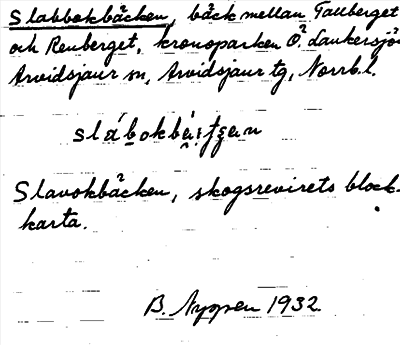 Slabbokbäcken, bäck mellan Tallberget
och Renberget, kronoparken Ö. Lankersjö
Arvidsjaur sn, Arvidsjaur tg, Norrb.l.
Slavokbäcken, skogsrevirets block-
karta.
B. Nyppen 1932.